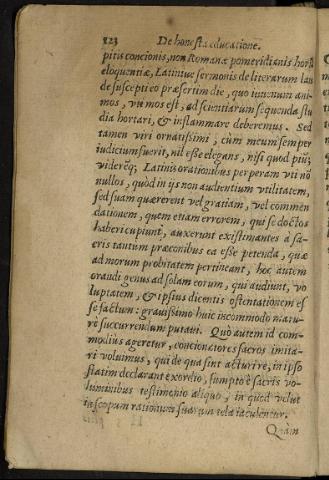 323 De honesta educatione.
pitis concionis, non Romanæ pomeridianis horis
eloquentiæ, Latinive sermonis de literarum lau
de suscepti eo præsertim die, quo iuvenum ani
mos, vti mos est, ad scientiarum sequenda stu
dia hortari, & inflammare deberemus. Sed
tamen viri ornatissimi, cùm mecum semper
iudicium fuerit, nil esse elegans, nisi quod piū;
viderēq; Latinis orationibus perperam vti nō
nullos, quòd in ijs non audientium vtilitatem,
sed suam quærerent vel gratiam, vel commen
dationem, quem etiam errorem, qui se doctos
haberi cupiunt, auxerunt existimantes à sa-
cris tantum præconibus ea esse petenda, quæ
ad morum probitatem pertineant, hoc autem
orandi genus ad solam eorum, qui audiunt, vo
luptatem, & ipsius dicentis ostentationem es
se factum: gravissimo huic incommodo matu-
rè succurrendum putavi. Quò autem id com-
modius ageretur, concionatores sacros imita-
ri voluimus, qui de qua sint acturi re, in ipso
statim declarant exordio, sumpto è sacris vo-
luminibus testimonio aliquo, in quod velut
in scopum rationum suarum tela iaculentur.
Quàm